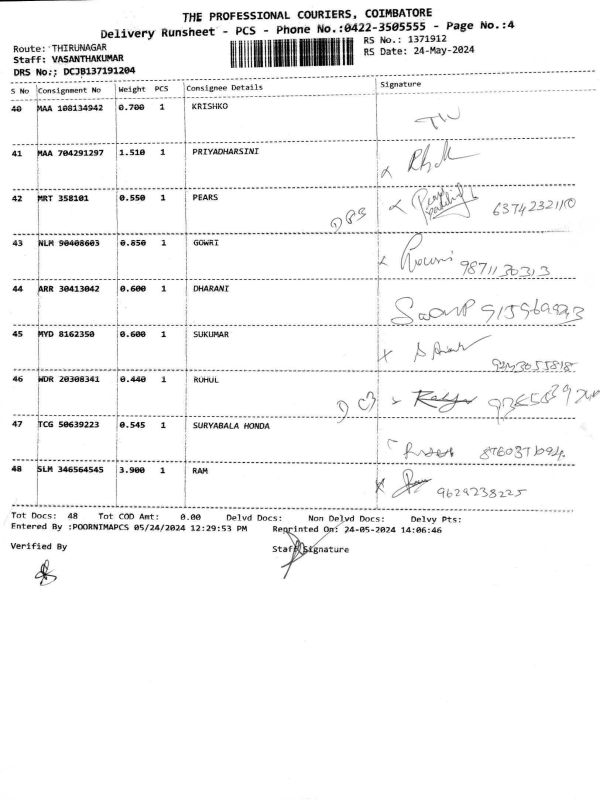 THE PROFESSIONAL COURIERS, COIMBATORE
Delivery Runsheet - PCS - Phone No.:0422-3505555 - Page No.:4
Route: THIRUNAGAR
RS No.: 1371912
Staff: VASANTHAKUMAR
RS Date: 24-May-2024
DRS No.; DCJB137191204
S No Consignment No Weight PCS Consignee Details Signature
40 MAA 108134942 0.700 1 KRISHKO
41 MAA 704291297 1.510 1 PRIYADHARSINI
42 MRT 358101 0.550 1 PEARS
43 NLM 90408603 0.850 1 GOWRI
9871130313
44 ARR 30413042 0.600 1 DHARANI
45 MYD 8162350 0.600 1 SUKUMAR
46 WDR 20308341 0.440 1 RUHUL
47 TCG 50639223 0.545 1 SURYABALA HONDA
48 SLM 346564545 3.900 1 RAM
9629238225
Tot Docs: 48 Tot COD Amt: 0.00 Delvd Docs: Non Delvd Docs: Delvy Pts:
Entered By :POORNIMAPCS 05/24/2024 12:29:53 PM Reprinted On: 24-05-2024 14:06:46
Verified By
Staff Signature